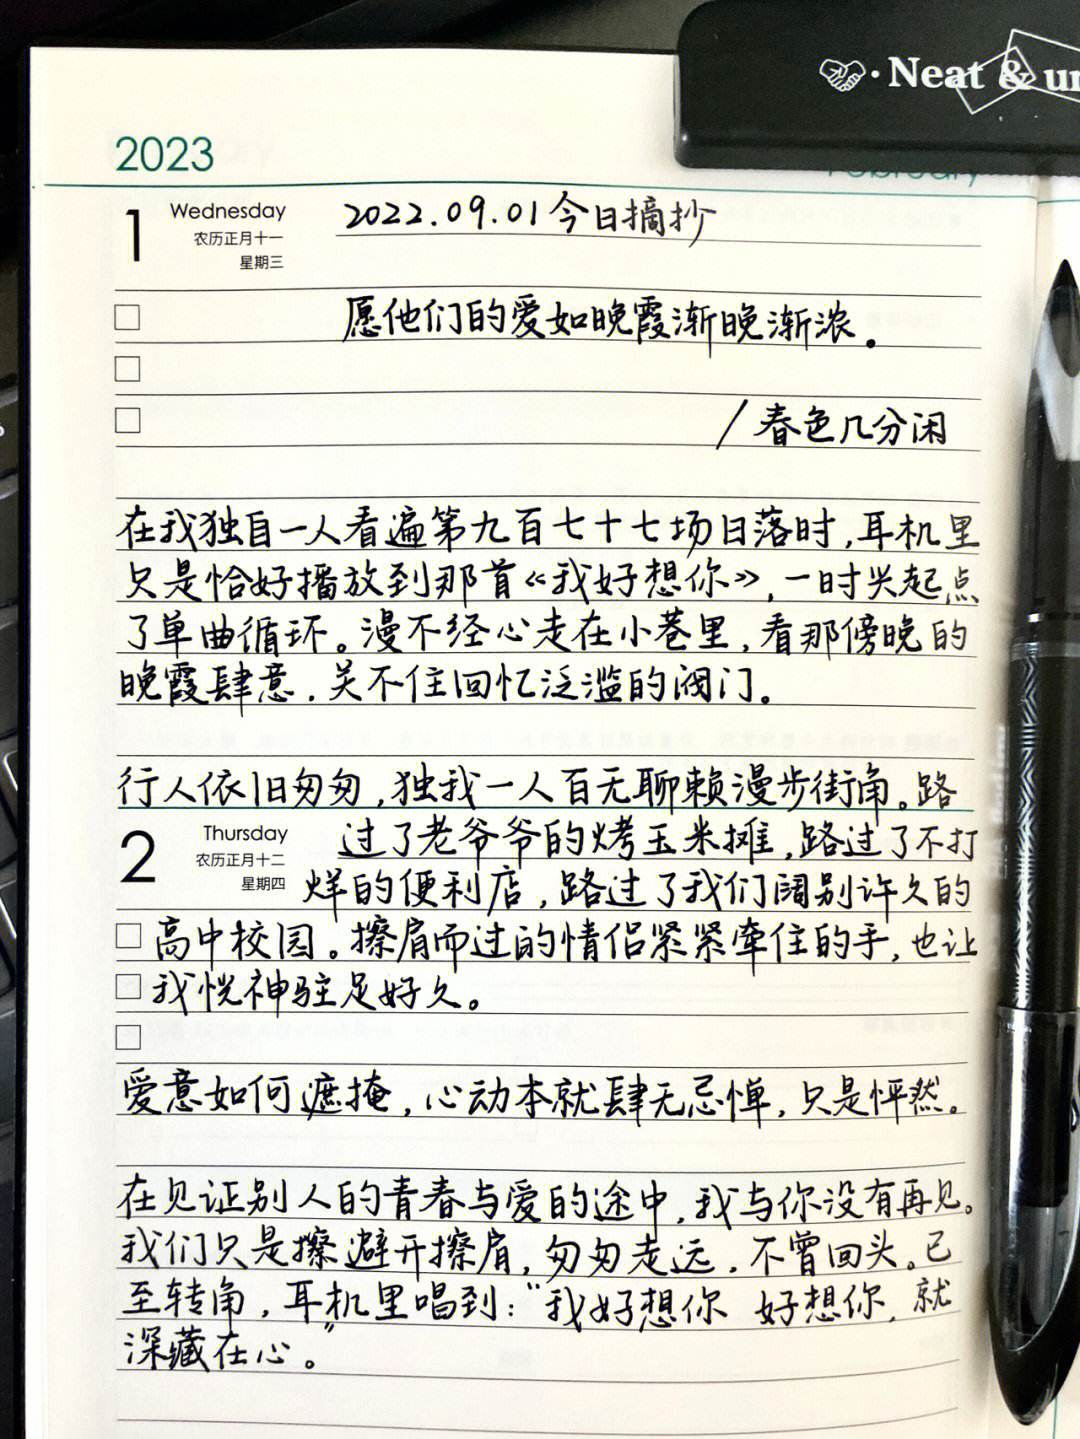 Neat & un
2023
February
1
Wednesday
农历正月十一
星期三
2022.09.01今日摘抄
愿他们的爱如晚霞渐晚渐浓.
/春色几分闲
在我独自一人看遍第九百七十七场日落时,耳机里
只是恰好播放到那首《我好想你》,一时兴起点
了单曲循环。漫不经心走在小巷里,看那傍晚的
晚霞肆意,关不住回忆泛滥的阀门。
行人依旧匆匆,独我一人百无聊赖漫步街角。路
2
Thursday
农历正月十二
星期四
过了老爷爷的烤玉米摊,路过了不打
烊的便利店,路过了我们阔别许久的
高中校园。擦肩而过的情侣紧紧牵住的手,也让
我恍神驻足好久。
爱意如何遮掩,心动本就肆无忌惮,只是怦然。
在见证别人的青春与爱的途中,我与你没有再见。
我们只是擦避开擦肩,匆匆走远,不曾回头。已
至转角,耳机里唱到:"我好想你 好想你,就
深藏在心"。